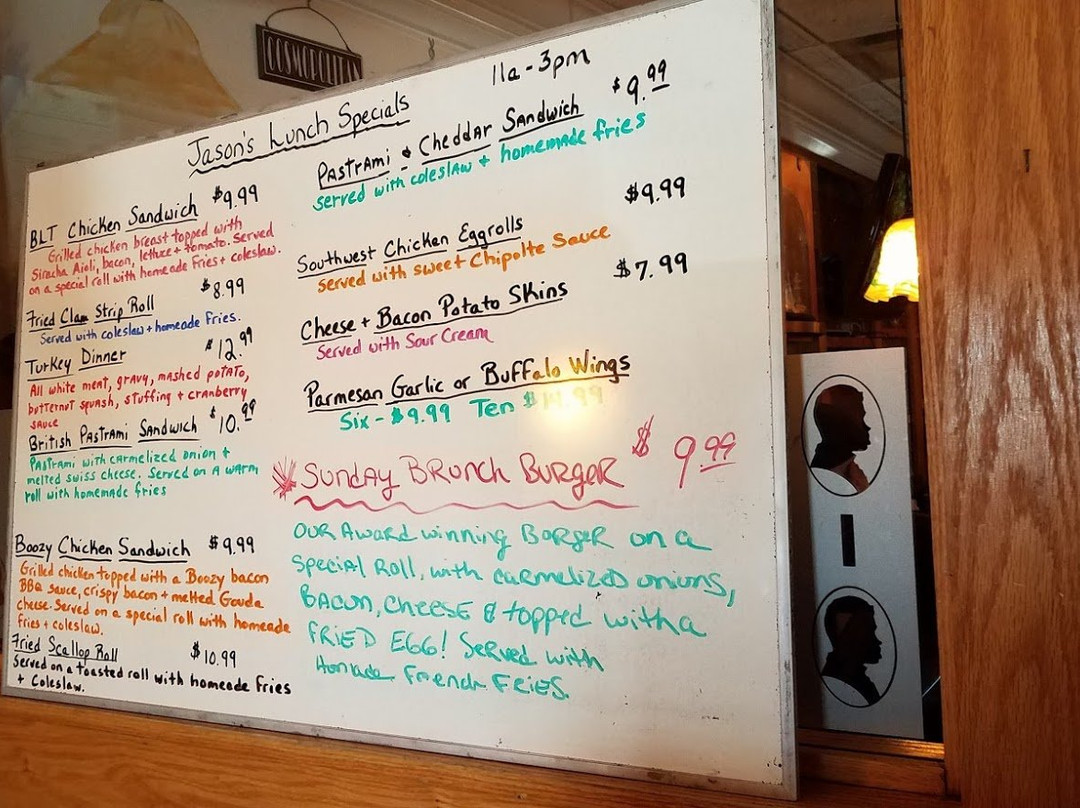 COSMOPOLITAN
11a-3pm
Jason's Lunch Specials
BLT Chicken Sandwich $9.99
Grilled chicken breast topped with
Siracha Aioli, bacon, lettuce + tomato. Served
on a special roll with homeade Fries + coleslaw.
Fried Clam Strip Roll $8.99
Served with coleslaw + homeade fries.
Turkey Dinner $12.99
All white meat, gravy, mashed potato,
butternut squash, stuffing + cranberry
sauce
British Pastrami Sandwich $10.99
Pastrami with carmelized onion +
melted swiss cheese. Served on a warm
roll with homemade fries
Boozy Chicken Sandwich $9.99
Grilled chicken topped with a Boozy bacon
BBQ sauce, crispy bacon + melted Gouda
cheese. Served on a special roll with homeade
fries + coleslaw.
Fried Scallop Roll $10.99
Served on a toasted roll with homeade fries
+ Coleslaw.
Pastrami & Cheddar Sandwich $9.99
served with coleslaw + homemade fries
Southwest Chicken Eggrolls $9.99
served with sweet Chipolte Sauce
Cheese + Bacon Potato Skins $7.99
Served with Sour Cream
Parmesan Garlic or Buffalo Wings
Six - $9.99 Ten $
Sunday Brunch Burger $9.99
Our Award winning Borger on a
special Roll, with carmelized onions,
Bacon, cheese & topped with a
FRIED EGG! Served with
Homade French FRIES.